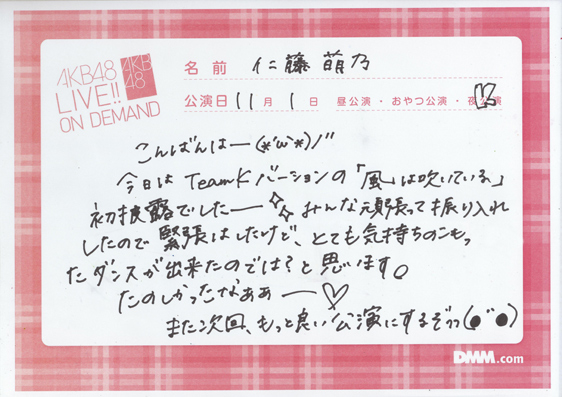 AKB48
LIVE!!
ON DEMAND
AKB
48
名前 仁藤萌乃
公演日 11月1日 昼公演・おやつ公演・夜公演
こんばんはー(*´ω`*)ノ"
今日は TeamKバージョンの「風は吹いている」
初披露でしたー みんな頑張って振り入れ
したので緊張はしたけど、とても気持ちのこもっ
たダンスが出来たのでは?と思います。
たのしかったなぁぁー♡
また次回、もっと良い公演にするぞっっ(●¨●)
DMM.com